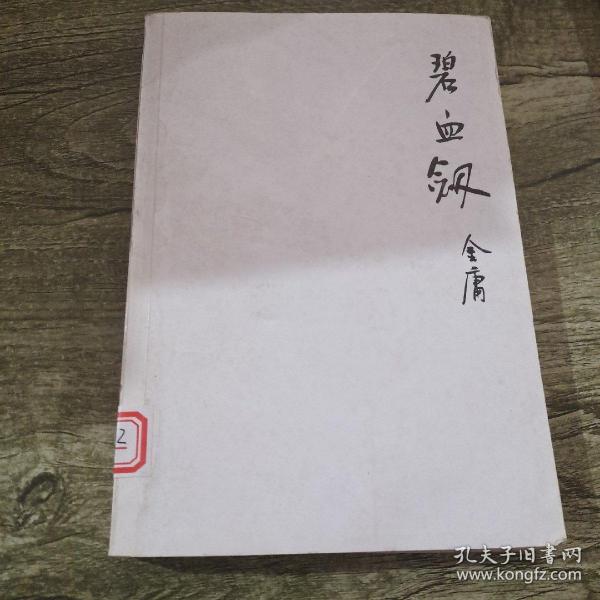 碧血劔
金庸
2
孔夫子旧书网
www.kongfz.com